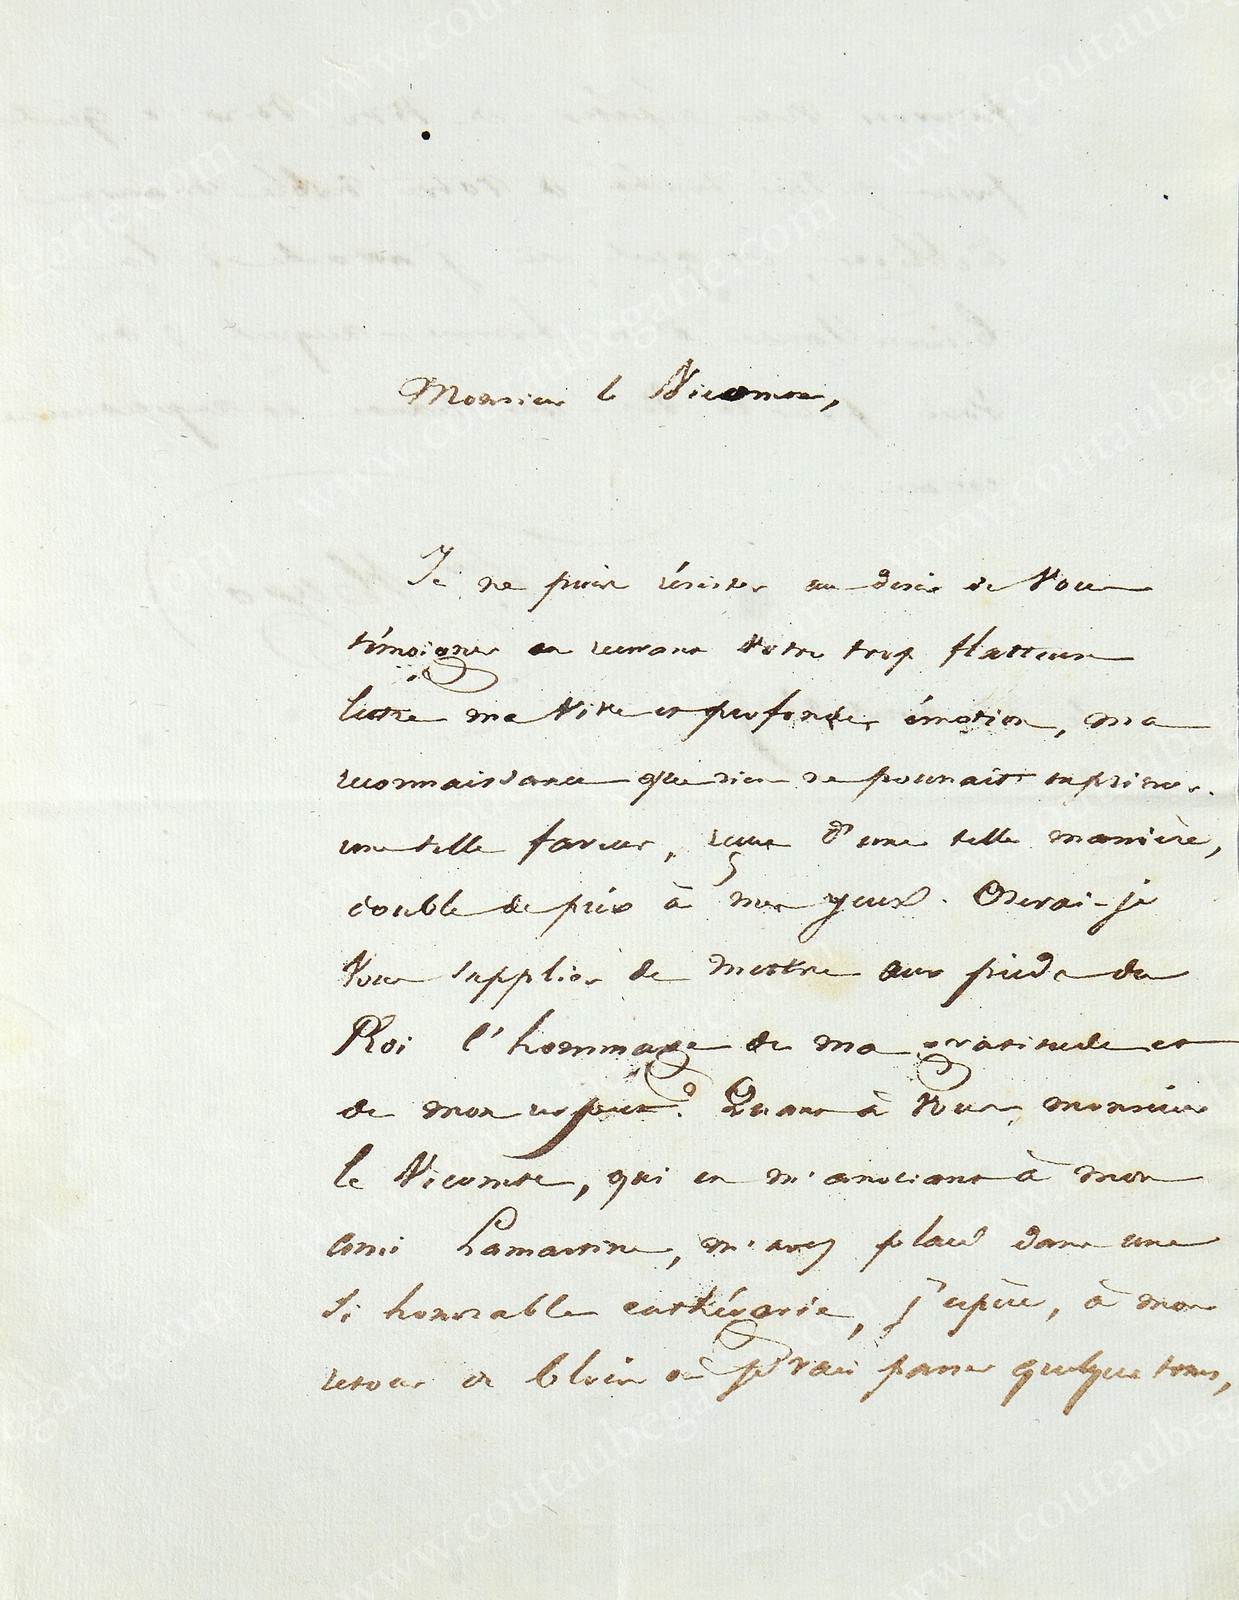 Monsieur le Vicomte,
Je ne puis résister au désir de vous
témoigner en recevant votre trop flatteuse
lettre ma vive et profonde émotion, ma
reconnaissance que rien ne pourrait exprimer.
une telle faveur, reçue d'une telle manière,
double de prix à mes yeux. Oserai-je
vous supplier de mettre aux pieds du
Roi l'hommage de ma gratitude et
de mon respect? Quant à vous, monsieur
le Vicomte, qui en m'associant à mon
ami Lamartine, m'avez placé dans une
si honorable cathégorie, j'espère, à mon
retour de blois où je vais passer quelque tems,
www.coutaubegarie.com